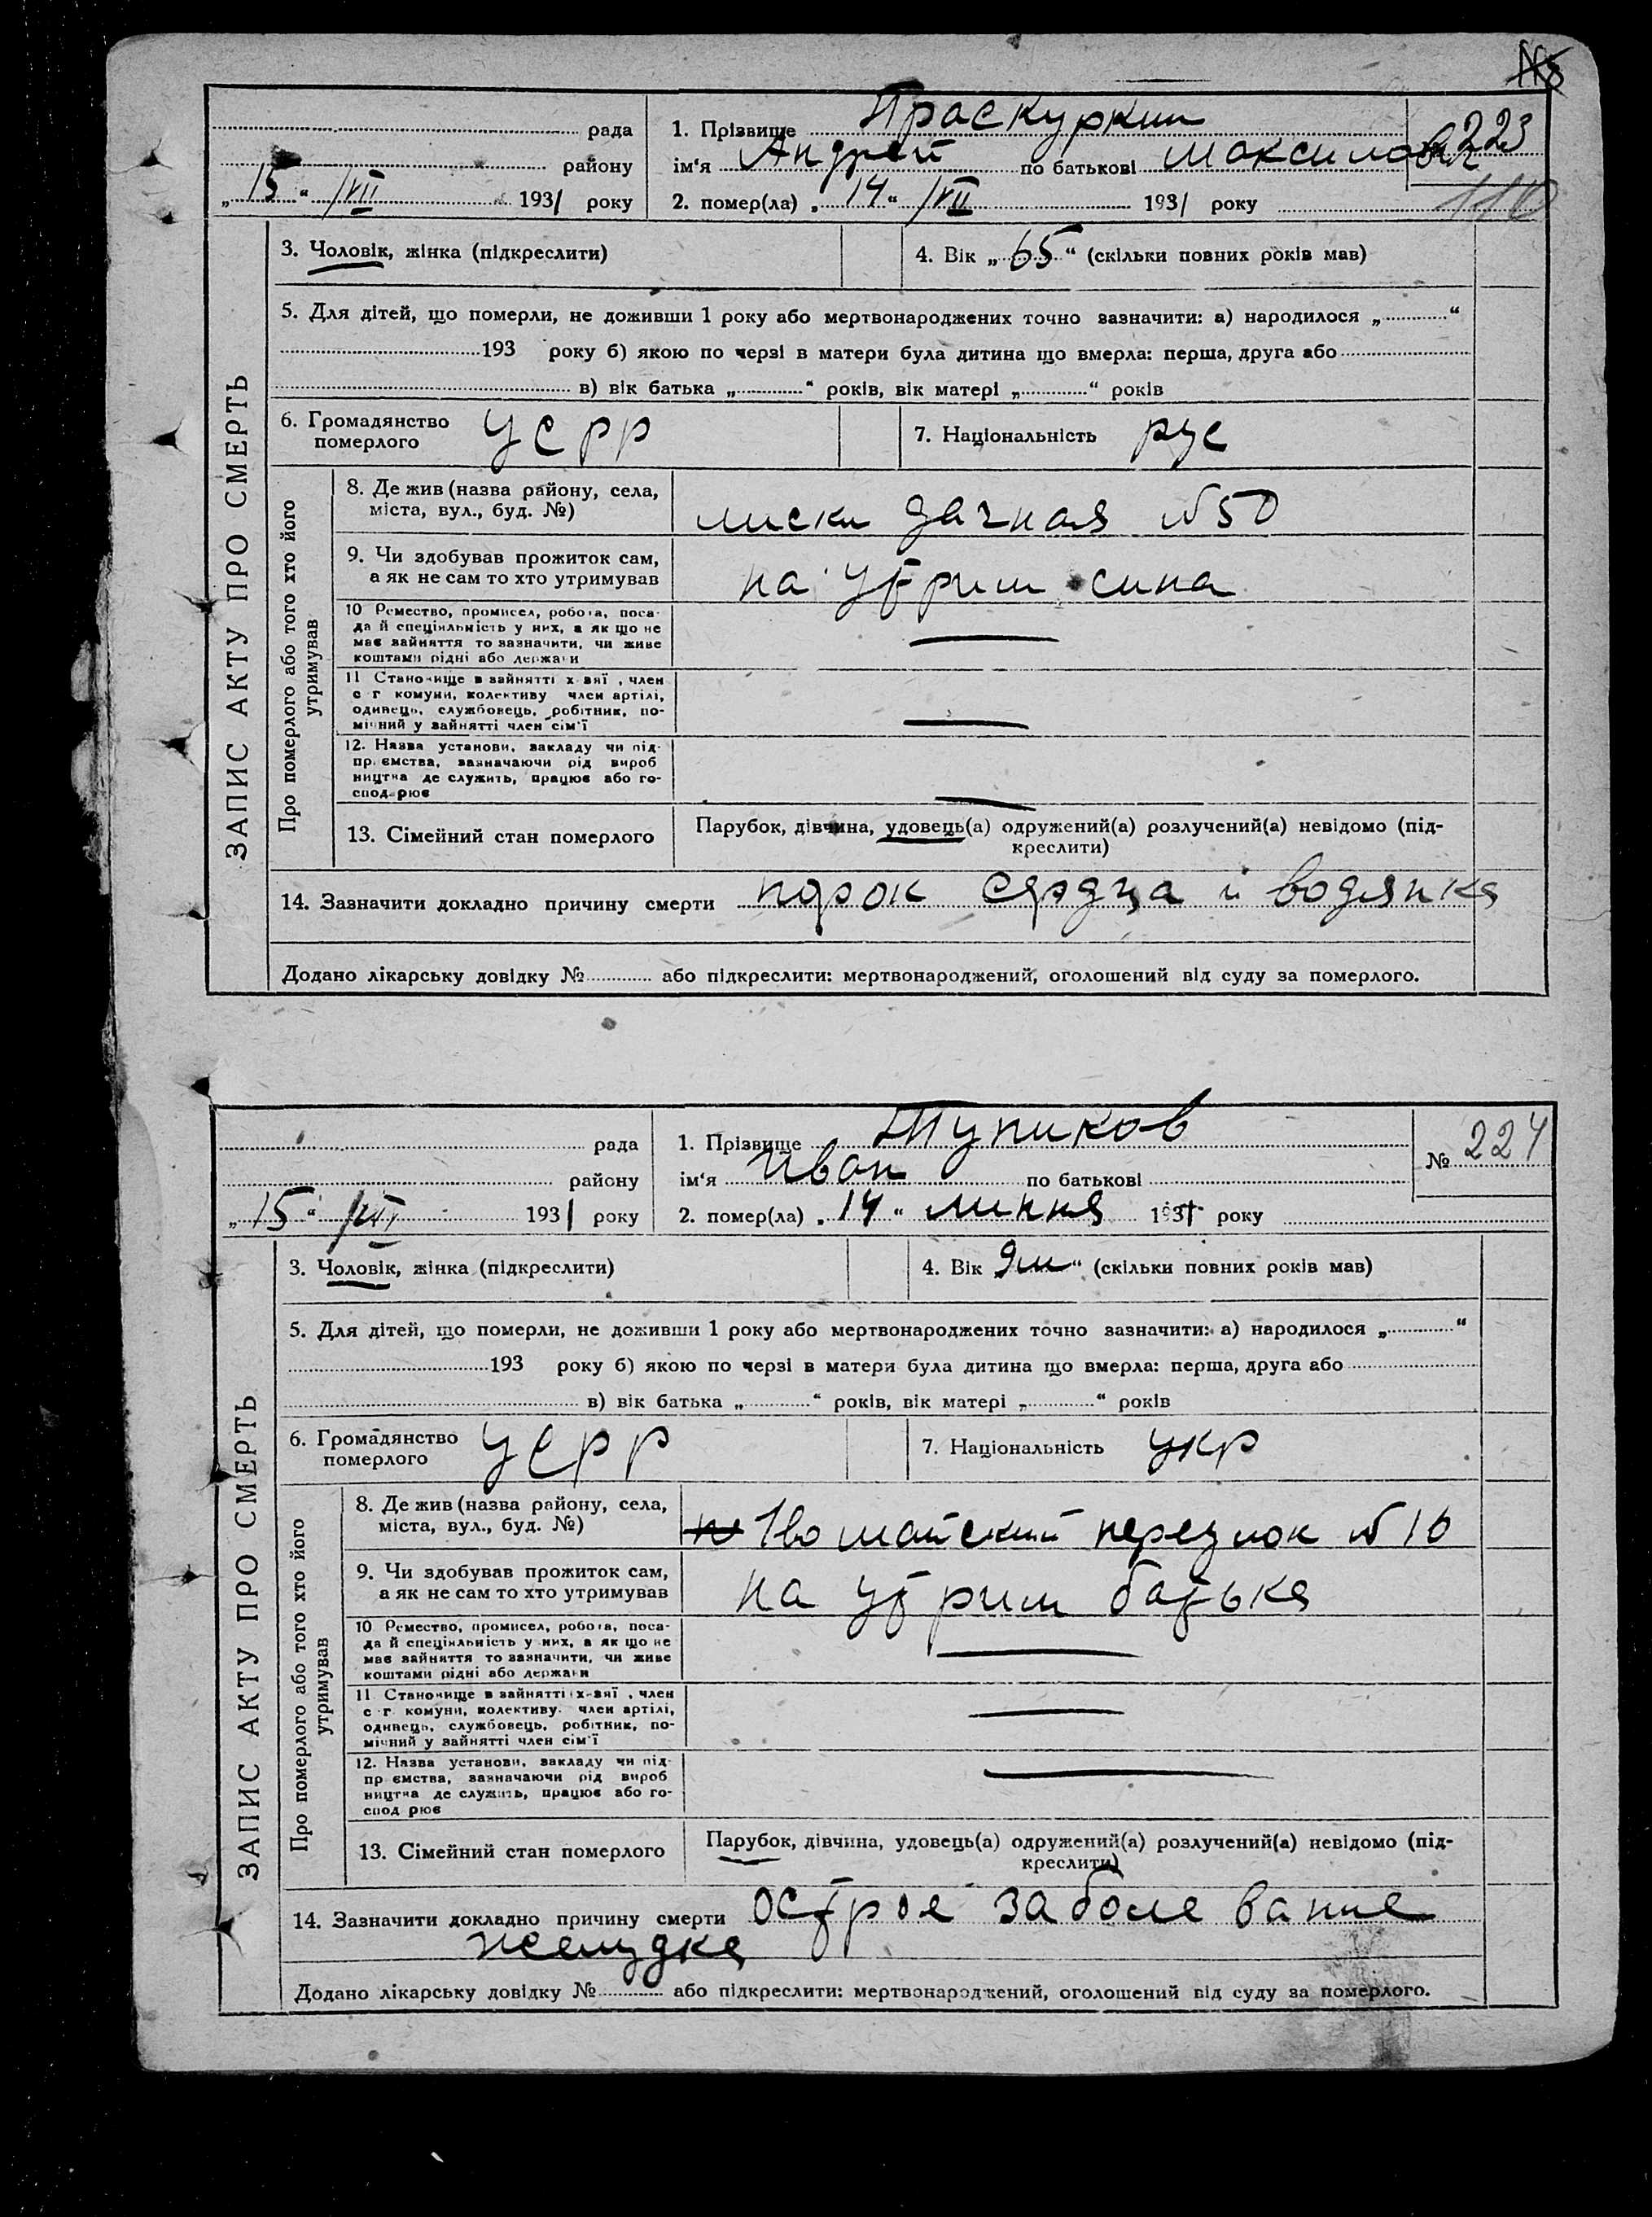 №
рада
району
„15“ VII 1931 року
1. Прізвище Праскуркин
ім‘я Андрей по батькові Максимович
2. помер(ла) „14“ VII 1931 року
223
110
ЗАПИС АКТУ ПРО СМЕРТЬ
3. Чоловік, жінка (підкреслити)
4. Вік „65“ (скільки повних років мав)
5. Для дітей, що померли, не доживши 1 року або мертвонароджених точно зазначити: а) народилося „ “
193 року б) якою по черзі в матери була дитина що вмерла: перша, друга або
в) вік батька „ “ років, вік матері „ “ років
6. Громадянство
померлого
УСРР
7. Національність рус
Про померлого або того хто його
утримував
8. Де жив (назва району, села,
міста, вул., буд. №)
лиски дачная №50
9. Чи здобував прожиток сам,
а як не сам то хто утримував
на утрим сина
10 Ремество, промисел, робота, поса-
да й спеціяльність у них, а як що не
має зайняття то зазначити, чи живе
коштами рідні або держави
11 Становище в зайнятті х-вяї , член
с г комуни, колективу член артілі,
одинець, службовець, робітник, по-
мічний у зайнятті член сім‘ї
12. Назва установи, закладу чи під-
пр ємства, зазначаючи рід вироб
ництва де служить, працює або го-
спод рює
13. Сімейний стан померлого
Парубок, дівчина, удовець(а) одружений(а) розлучений(а) невідомо (під-
креслити)
14. Зазначити докладно причину смерти порок сердца и водянка
Додано лікарську довідку № або підкреслити: мертвонароджений, оголошений від суду за померлого.
рада
району
„15“ VII 1931 року
1. Прізвище Тупиков
ім‘я Иван по батькові
2. помер(ла) „14“ липня 1931 року
№ 224
ЗАПИС АКТУ ПРО СМЕРТЬ
3. Чоловік, жінка (підкреслити)
4. Вік „9м“ (скільки повних років мав)
5. Для дітей, що померли, не доживши 1 року або мертвонароджених точно зазначити: а) народилося „ “
193 року б) якою по черзі в матери була дитина що вмерла: перша, друга або
в) вік батька „ “ років, вік матері „ “ років
6. Громадянство
померлого
УСРР
7. Національність укр
Про померлого або того хто його
утримував
8. Де жив (назва району, села,
міста, вул., буд. №)
1во майский переулок №16
9. Чи здобував прожиток сам,
а як не сам то хто утримував
на утрим батька
10 Ремество, промисел, робота, поса-
да й спеціяльність у них, а як що не
має зайняття то зазначити, чи живе
коштами рідні або держави
11 Становище в зайнятті х-вяї , член
с-г комуни, колективу. член артілі,
одинець, службовець, робітник, по-
мічний у зайнятті член сім‘ї
12. Назва установи, закладу чи під-
пр ємства, зазначаючи рід вироб
ництва де служить, працює або го-
спод рює
13. Сімейний стан померлого
Парубок, дівчина, удовець(а) одружений(а) розлучений(а) невідомо (під-
креслити)
14. Зазначити докладно причину смерти острое заболевание
желудка
Додано лікарську довідку № або підкреслити: мертвонароджений, оголошений від суду за померлого.